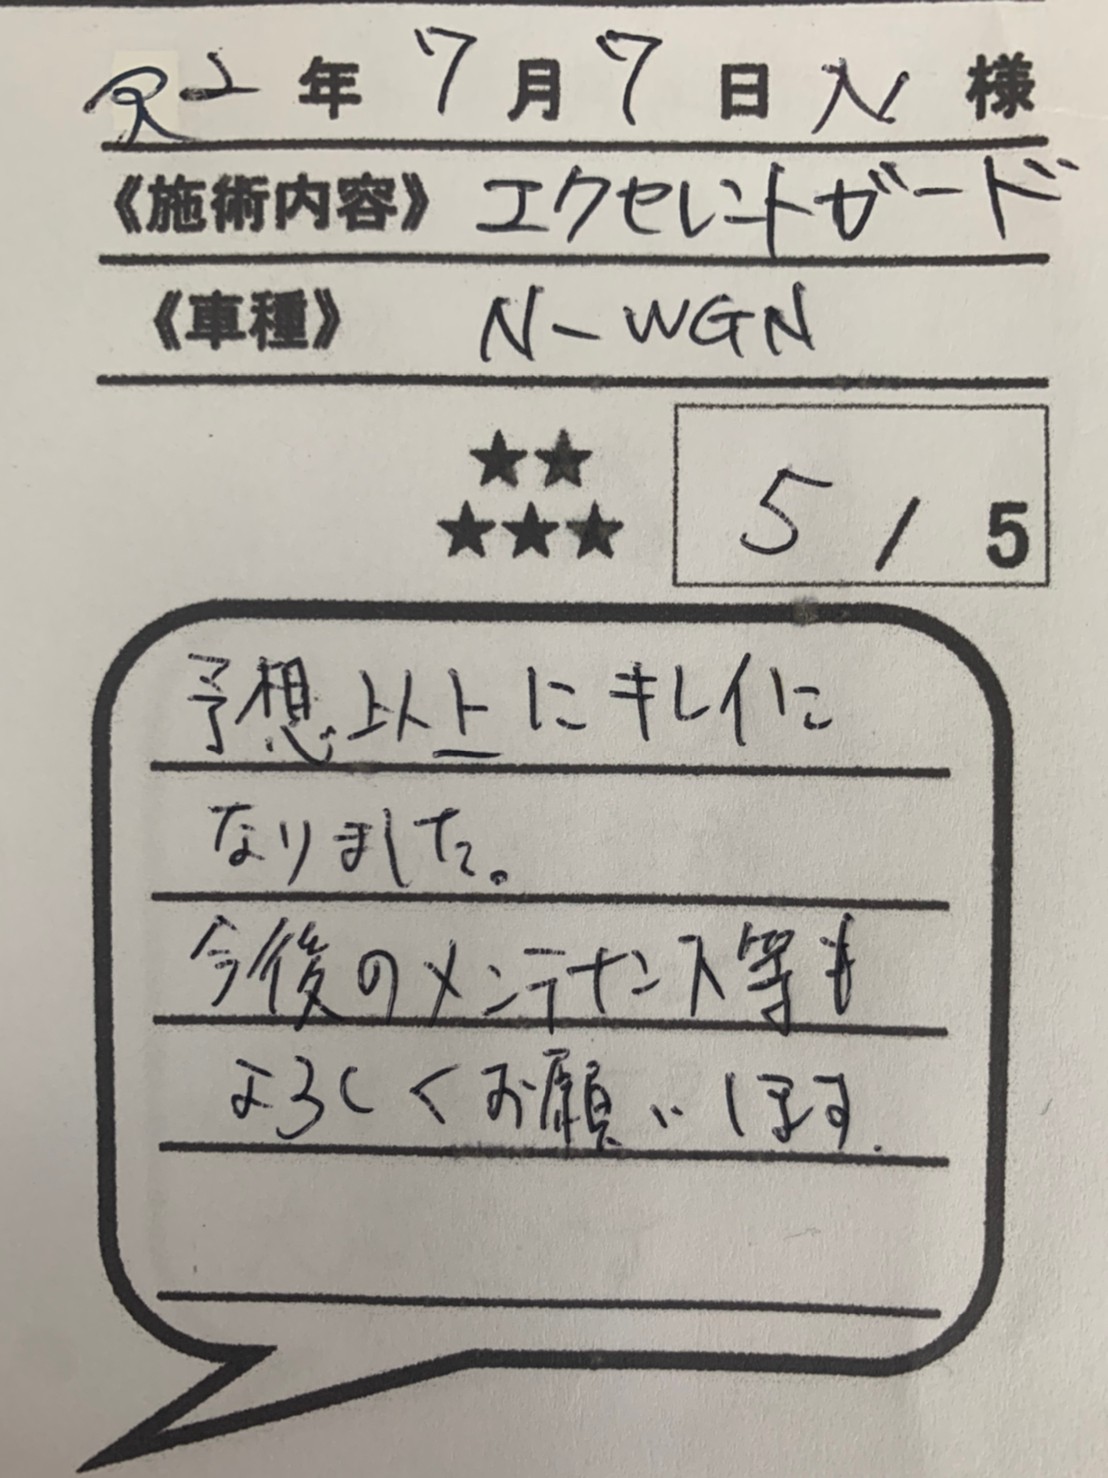 R2年7月7日N様
《施術内容》エクセレントガード
《車種》N-WGN
★★
★★★ 5/5
予想以上にキレイに
なりました。
今後のメンテナンス等も
よろしくお願いします.